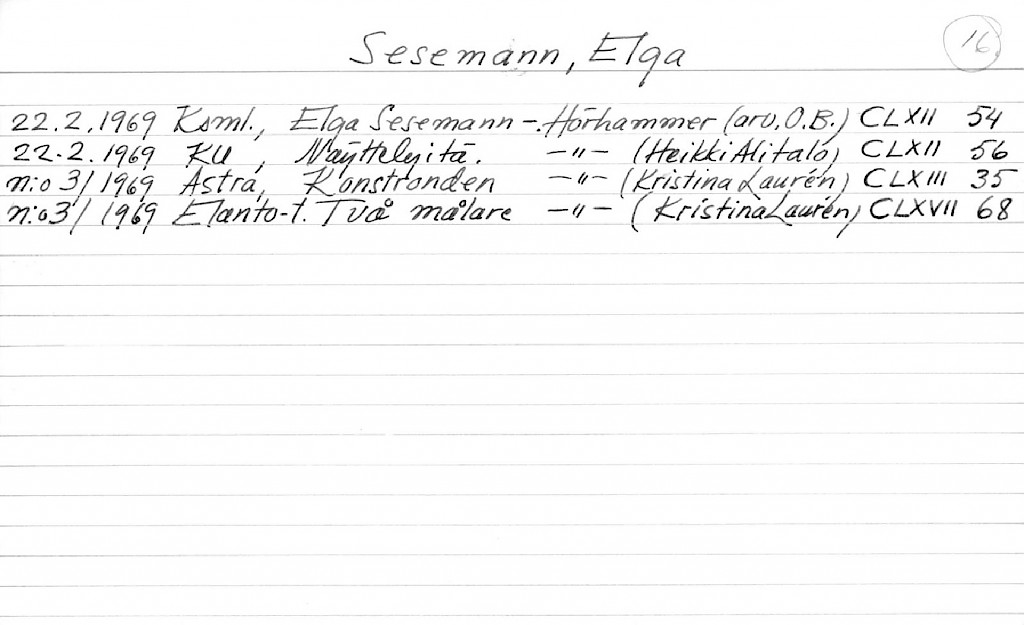 Sesemann, Elga
16.
22.2.1969 Ksml., Elga Sesemann -. Hörhammer (arv. O.B.) CLXII 54
22.2.1969 KU, Näyttelyitä. -"- (Heikki Alitalo) CLXII 56
n:o 3/1969 Astra, Konstronden -"- (Kristina Laurén) CLXIII 35
n:o 3/1969 Elanto-t. Två målare -"- (Kristina Laurén) CLXVII 68